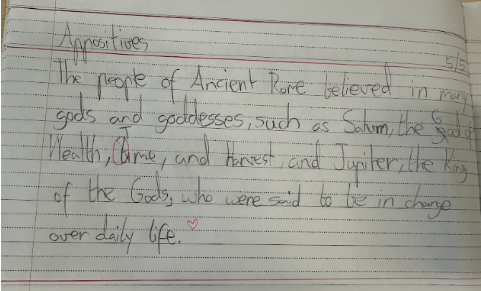 Appositives
5/5
The people of Ancient Rome believed in many
gods and goddesses, such as Saturn, the God of
Wealth, Time, and Harvest, and Jupiter, the King
of the Gods, who were said to be in charge
over daily life.